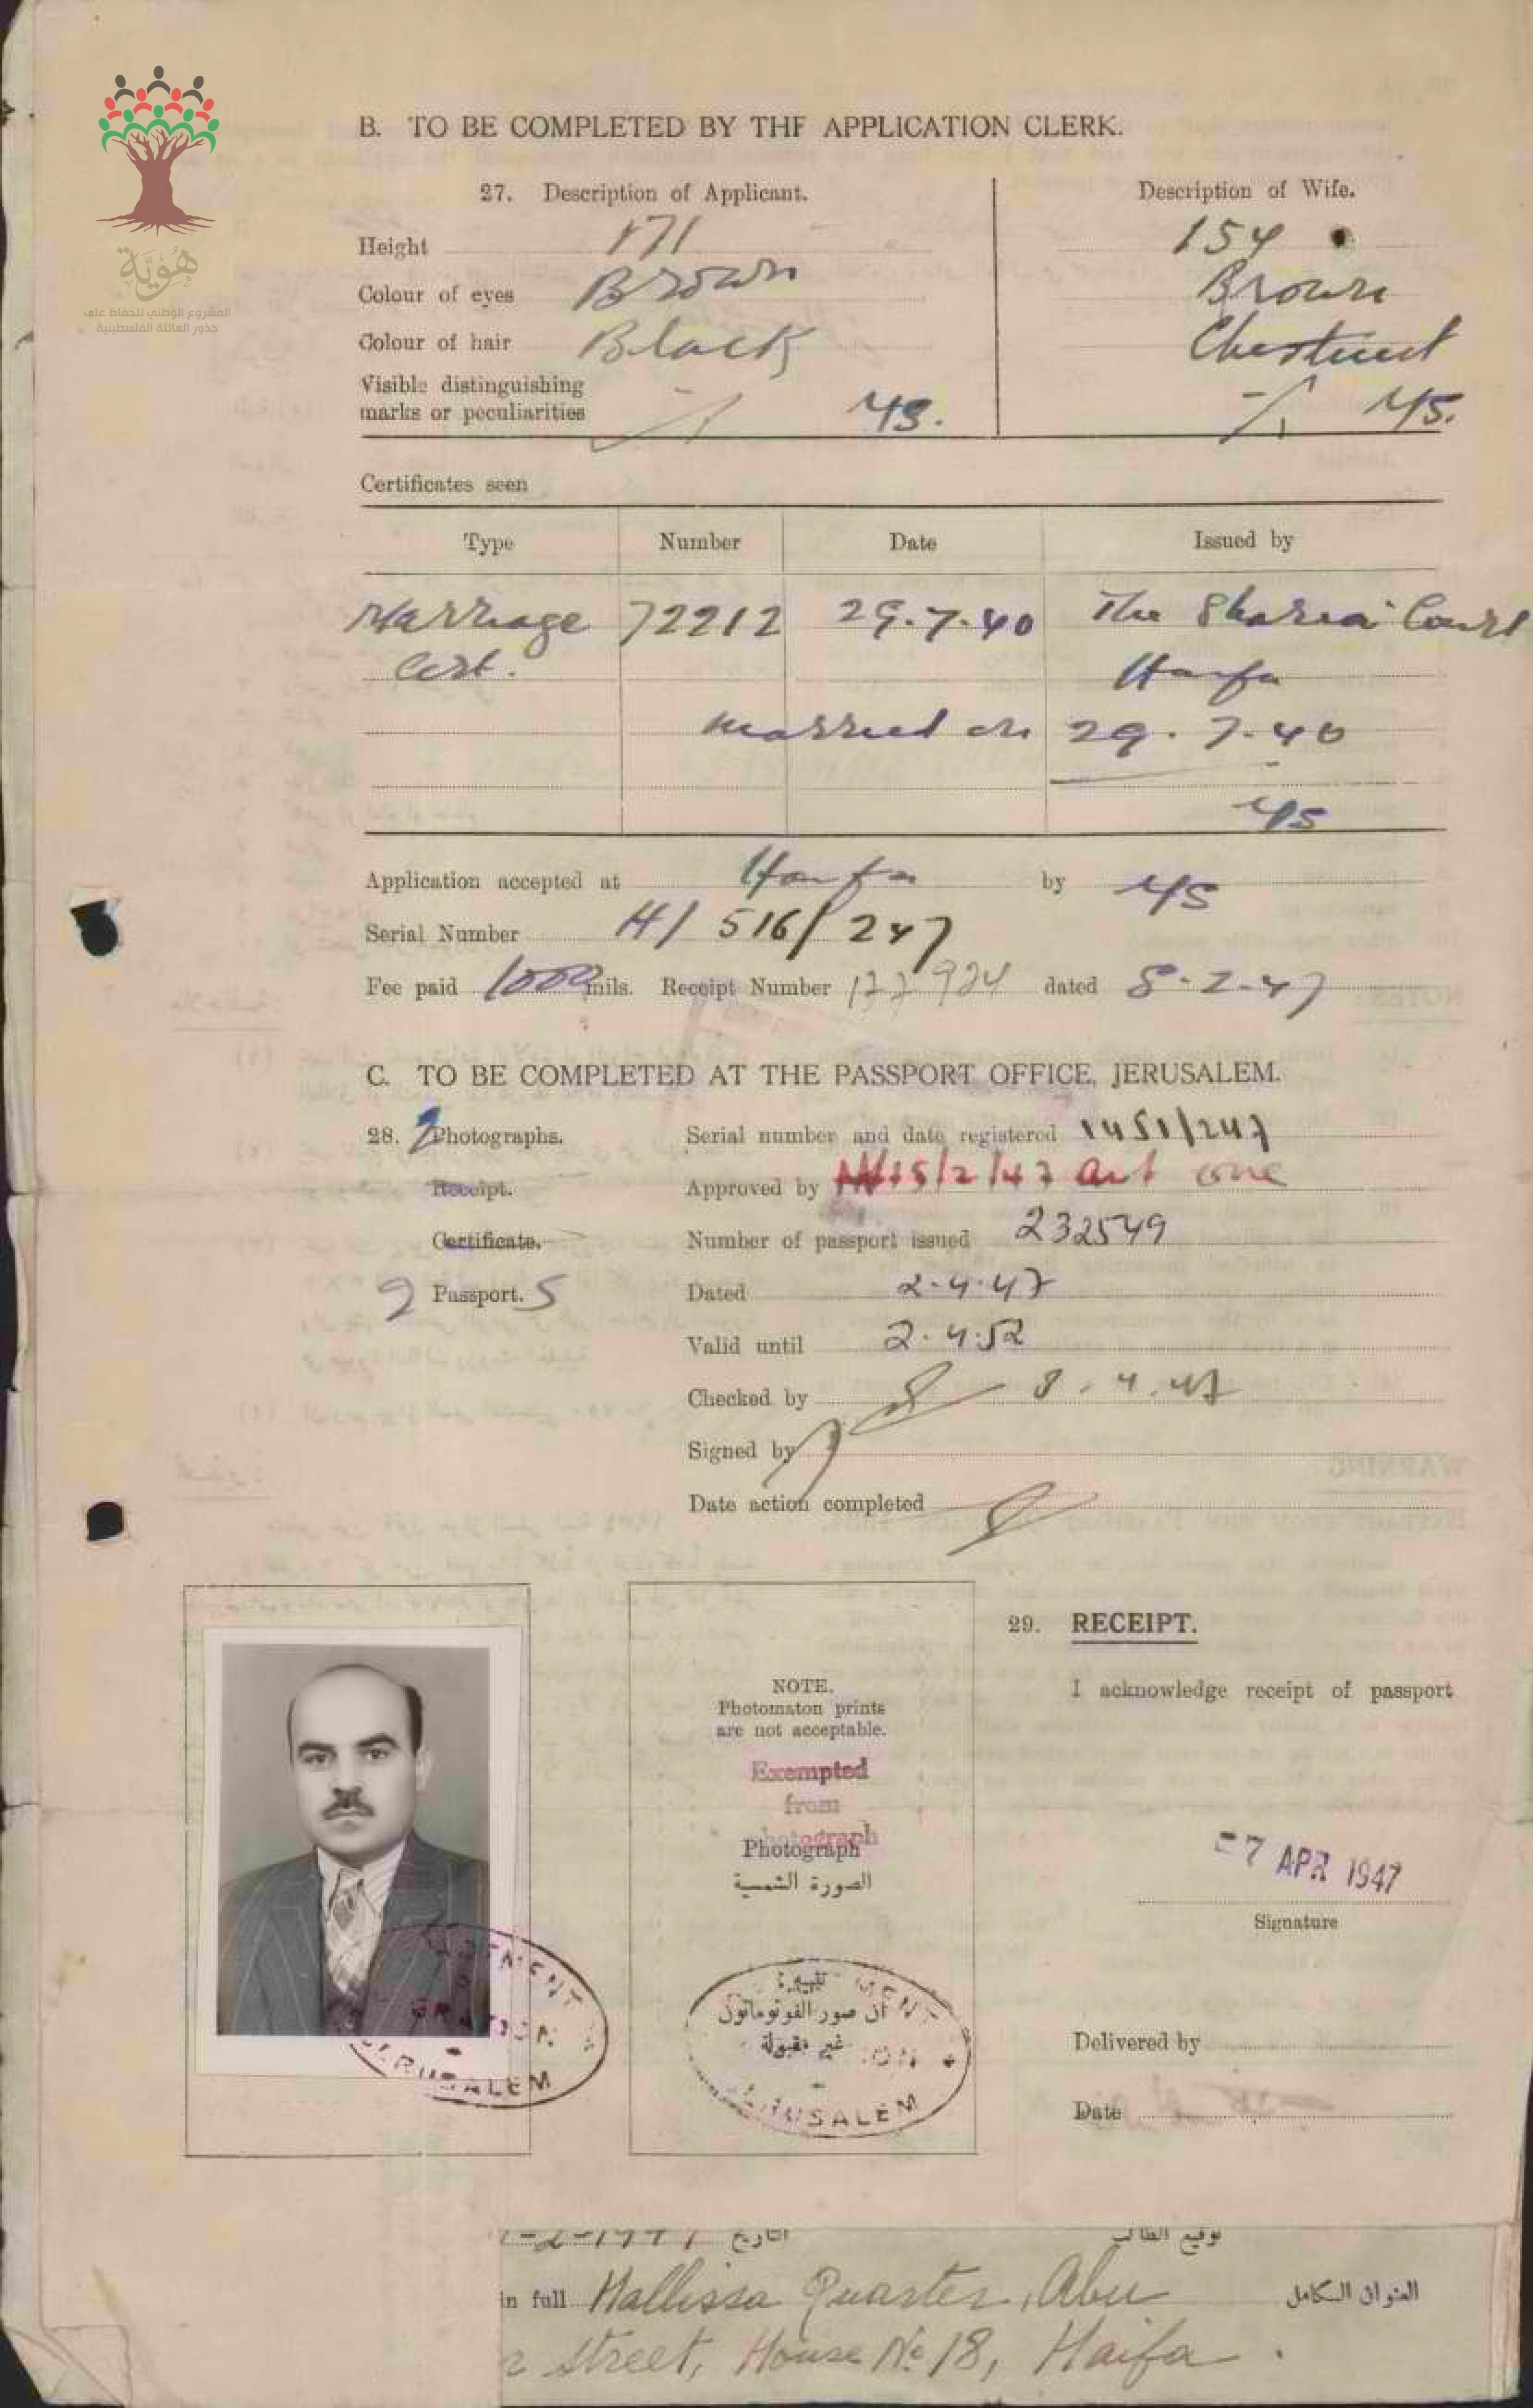 هُوِيَّة
المشروع الوطني للحفاظ على
جذور العائلة الفلسطينية
B. TO BE COMPLETED BY THE APPLICATION CLERK.
27. Description of Applicant.
Description of Wife.
Height 171
154
Colour of eyes Brown
Brown
Colour of hair Black
Chestnut
Visible distinguishing
marks or peculiarities
Certificates seen
Type Number Date Issued by
Marriage 72212 29.7.40 The Sharia Court
Cert. Haifa
Married on 29.7.40
Application accepted at Haifa by
Serial Number H/ 516/ 247
Fee paid 1000 mils. Receipt Number dated 8-2-47
C. TO BE COMPLETED AT THE PASSPORT OFFICE, JERUSALEM.
28. 2 Photographs. Serial number and date registered 1451/247
Receipt. Approved by 15/2/47 art one
Certificate. Number of passport issued 232549
Passport. 5 Dated 2.4.47
Valid until 2.4.52
Checked by 3.4.47
Signed by
Date action completed
29. RECEIPT.
I acknowledge receipt of passport
NOTE.
Photomaton prints
are not acceptable.
Exempted
from
photograph
Photograph
الصورة الشمسية
-7 APR 1947
Signature
تنبيه:
ان صور الفوتوماتون
غير مقبولة
JERUSALEM
JERUSALEM
Delivered by
Date
التاريخ
توقيع الطالب
in full Hallissa Quarter, Abu
العنوان الكامل
Street, House No 18, Haifa.